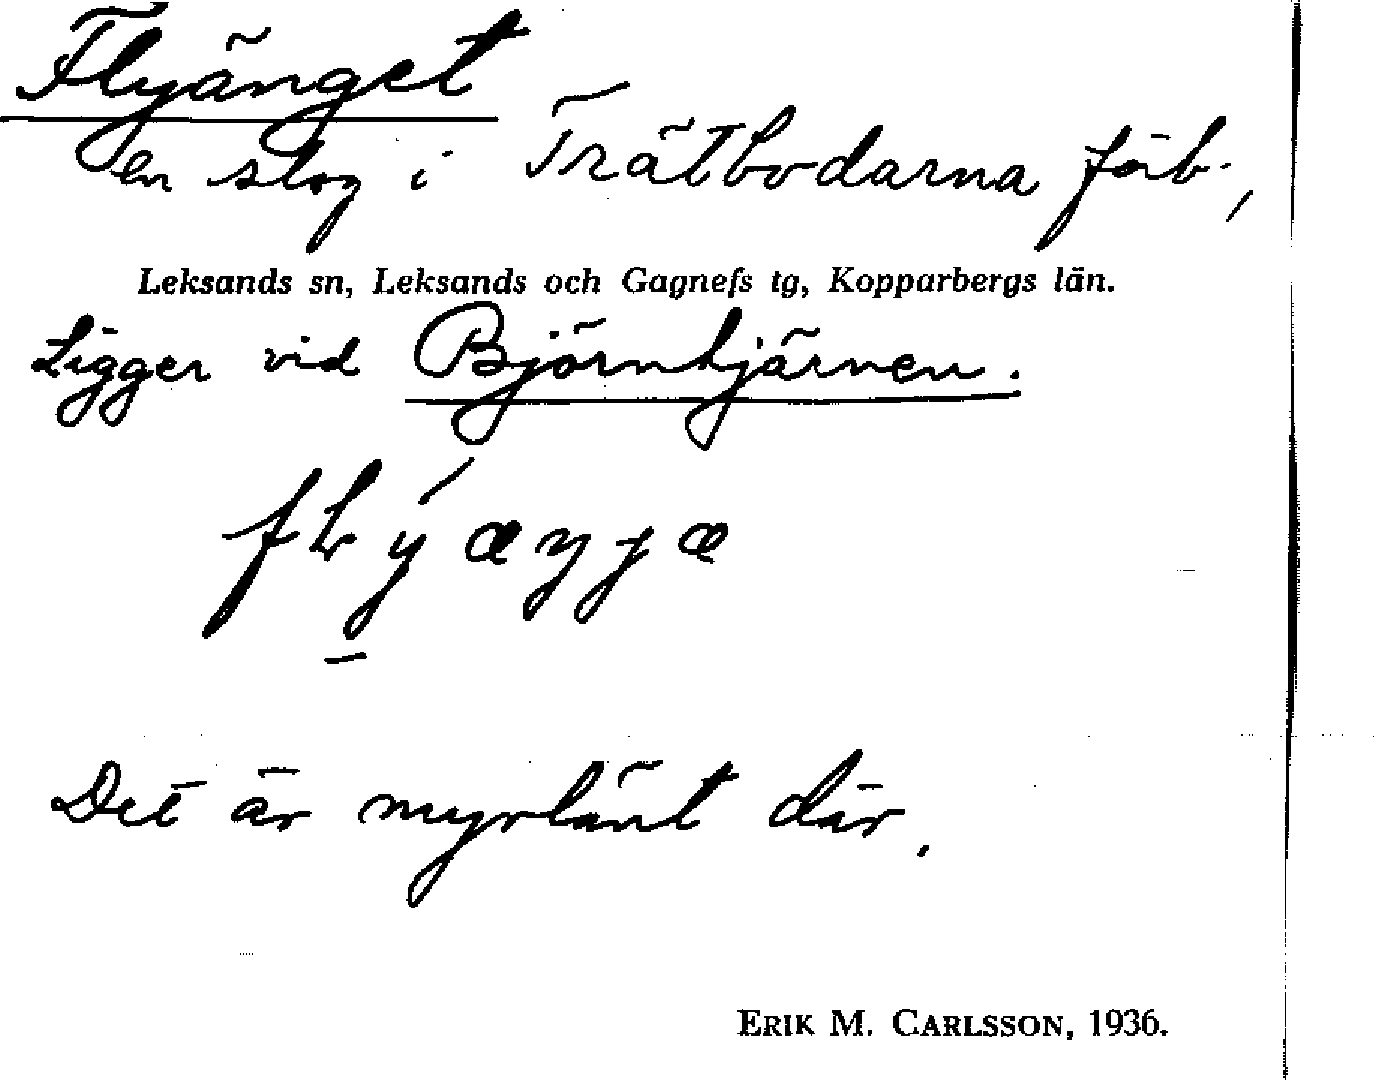 Flyänget
en slog i Trätbodarna fäb.,
Leksands sn, Leksands och Gagnefs tg, Kopparbergs län.
Ligger vid Björntjärnen.
Det är myrlänt där.
ERIK M. CARLSSON, 1936.